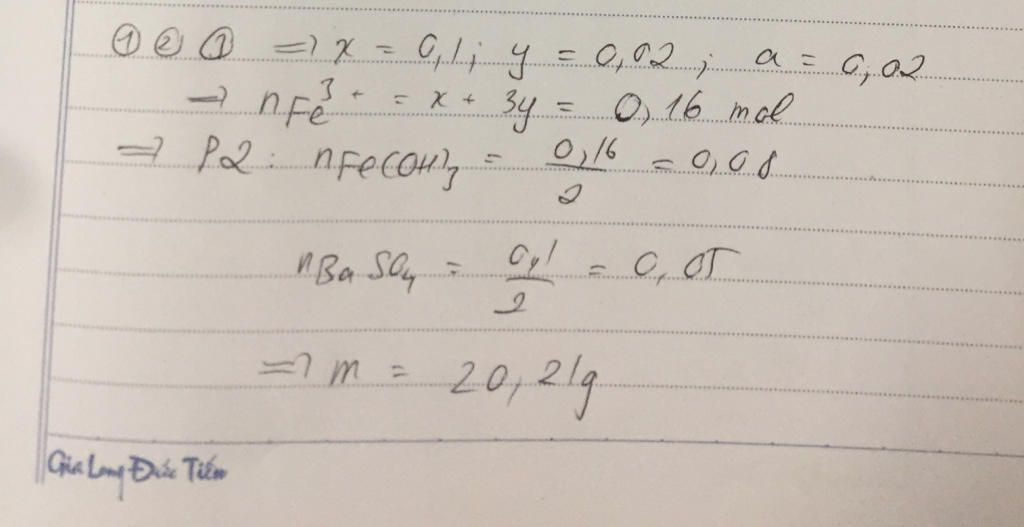 ① ② ① => x = 0,1; y = 0,02; a = 0,02
=> nFe³⁺ = x + 3y = 0,16 mol
=> P2: nFe(OH)₃ = 0,16/2 = 0,08
nBaSO₄ = 0,1/2 = 0,05
=> m = 20,21g
Gia Long Đức Tiến